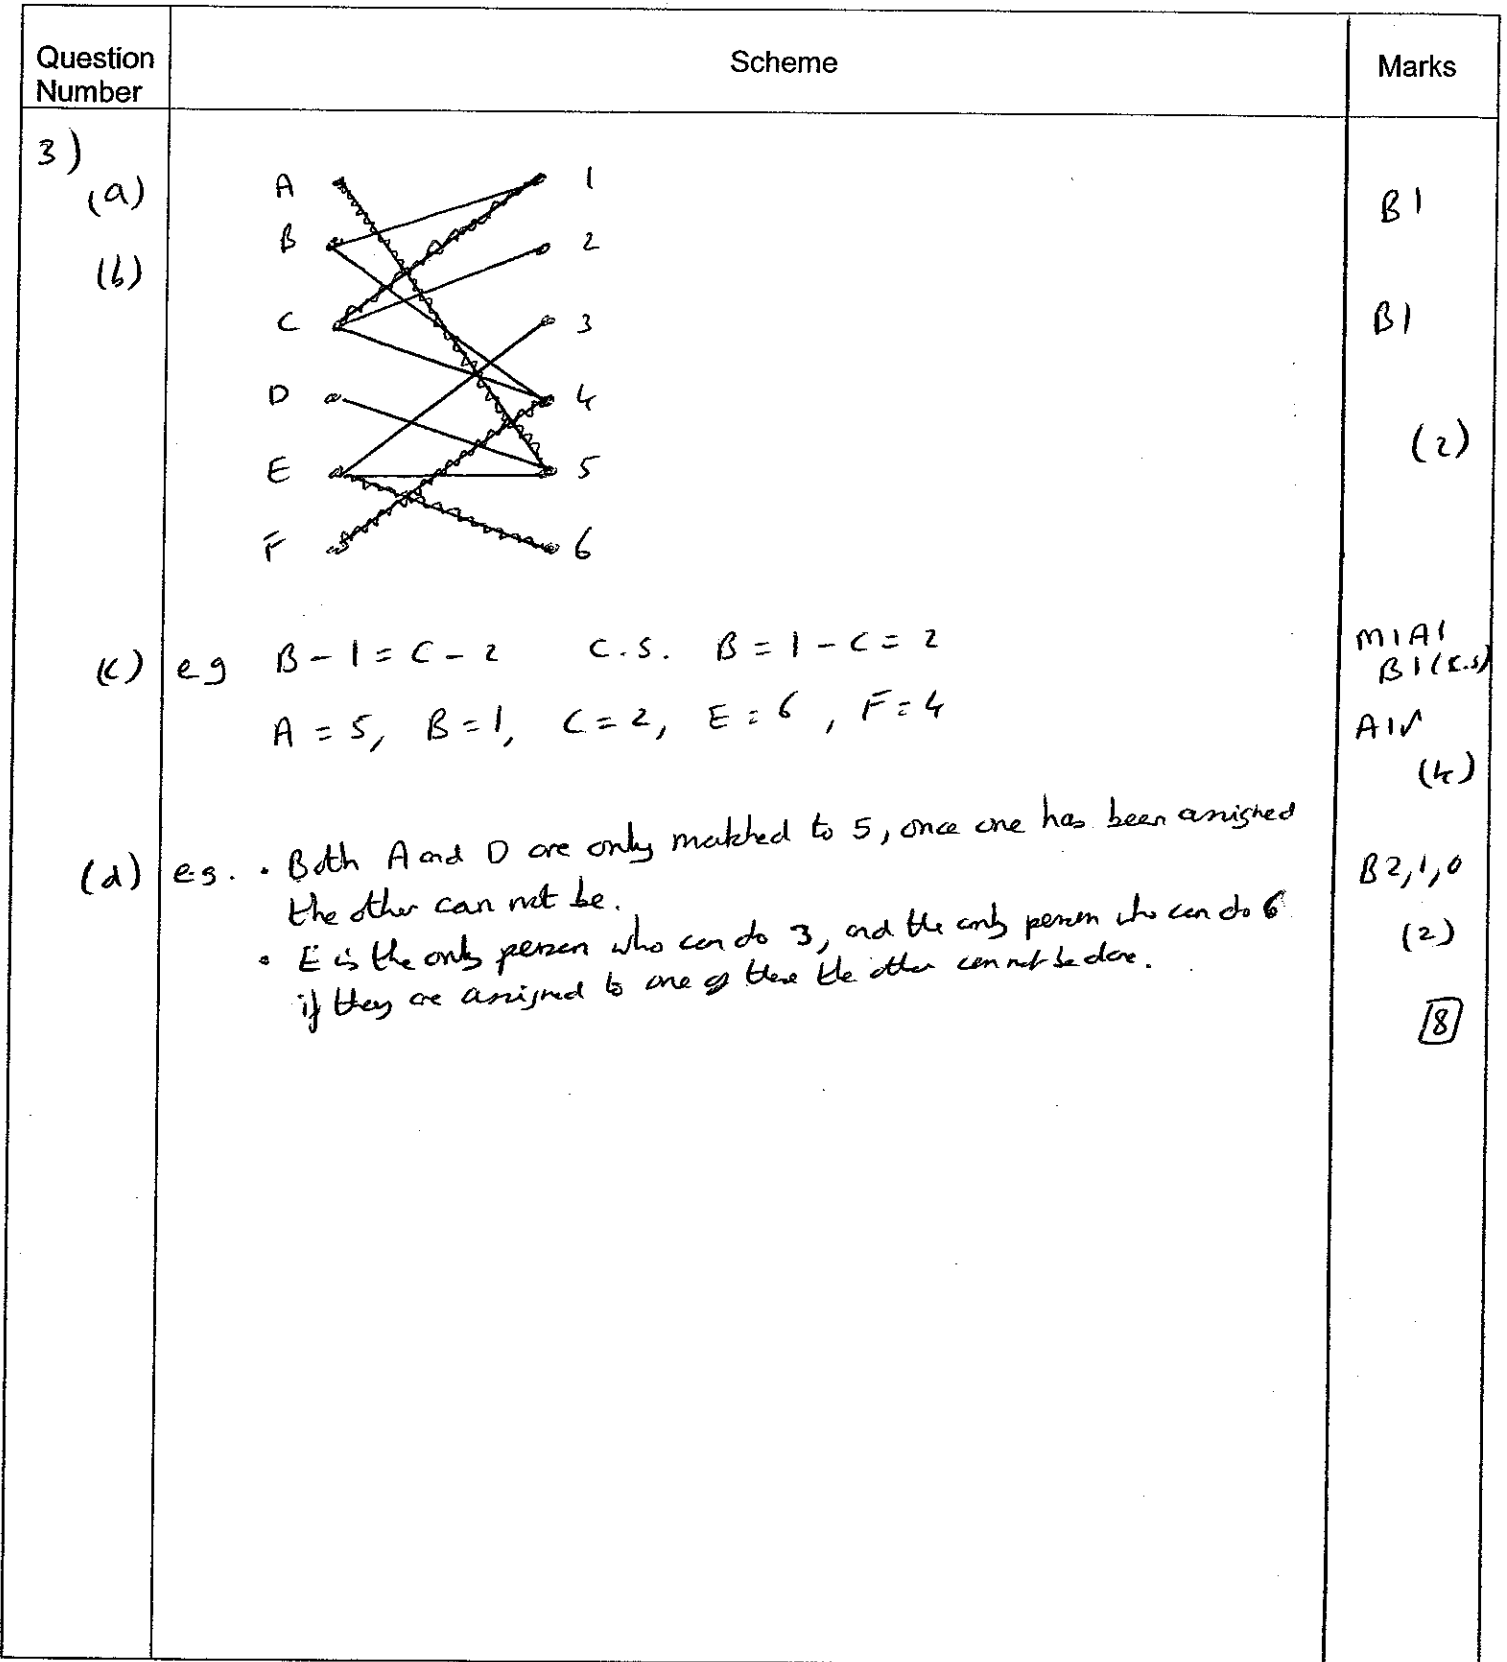 Question Number
Scheme
Marks
3)
(a)
(b)
A 1
B 2
C 3
D 4
E 5
F 6
B1
B1
(2)
(c) eg B - 1 = C - 2 C.S. B = 1 - C = 2
M1A1
B1(c.s)
A = 5, B = 1, C = 2, E = 6, F = 4
A1√
(4)
(d) e.g. • Both A and D are only matched to 5, once one has been assigned
the other can not be.
• E is the only person who can do 3, and the only person who can do 6
if they are assigned to one of these the other cannot be done.
B2,1,0
(2)
8